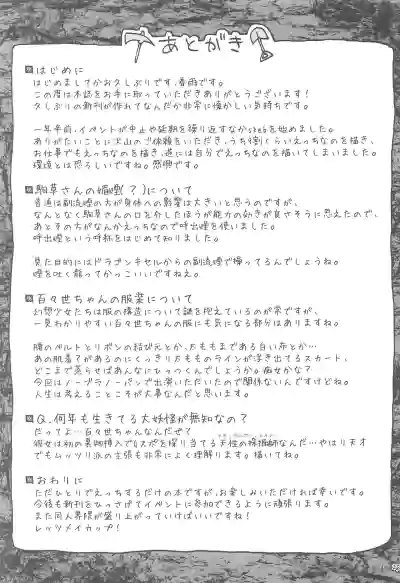 あとがき
はじめに
はじめましてかお久しぶりです、春雨です。
この度は本誌をお手に取っていただきありがとうございます！
久しぶりの新刊が作れてなんだか非常に懐かしい気持ちです。
一年半前、イベントが中止や延期を繰り返すなかskebを始めました。
ありがたいことに沢山のご依頼をいただき、うち9割くらいえっちなのを描き、
お仕事でもえっちなのを描き、遂には自分でえっちなのを描いてしまいました。
環境とは恐ろしいですね。感謝です。
駒草さんの煙(？)について
普通は副流煙の方が身体への影響は大きいと思うのですが、
なんとなく駒草さんの口を介したほうが能力の効きが良さそうに思えたので、
あとその方がなんかえっちなので呼出煙を使いました。
呼出煙という呼称をはじめて知りました。
見た目的にはドラゴンキセルからの副流煙で操ってるんでしょうね。
煙を吐く龍ってかっこいいですねえ。
百々世ちゃんの服装について
幻想少女たちは服の構造について謎を抱えているのが常ですが、
一見わかりやすい百々世ちゃんの服にも気になる部分はありますね。
腰のベルトとリボンの結び元とか、太ももまである白い布とか…
あの肌着？があるのにくっきり太もものラインが浮き出てるスカート、
どこまで蒸らせばあんなにひっつくんでしょうか。痴女かな？
今回はノーブラノーパンで出演いただいたので関係ないんですけどね。
人生は考えることころが大事なんだと思います。
Q.何年も生きてる大妖怪が無知なの？
だってよ…百々世ちゃんなんだぜ？
彼女は初の異物挿入でGスポを探り当てる天性の採掘師なんだ…やはり天才
でもムッツリ派の主張も非常によく理解ります。描いてね。
おわりに
ただひとりでえっちするだけの本ですが、お楽しみいただければ幸いです。
今後も新刊をひっさげてイベントに参加できるように頑張ります。
また同人界隈が盛り上がっていけばいいですね！
レッツメイカップ！